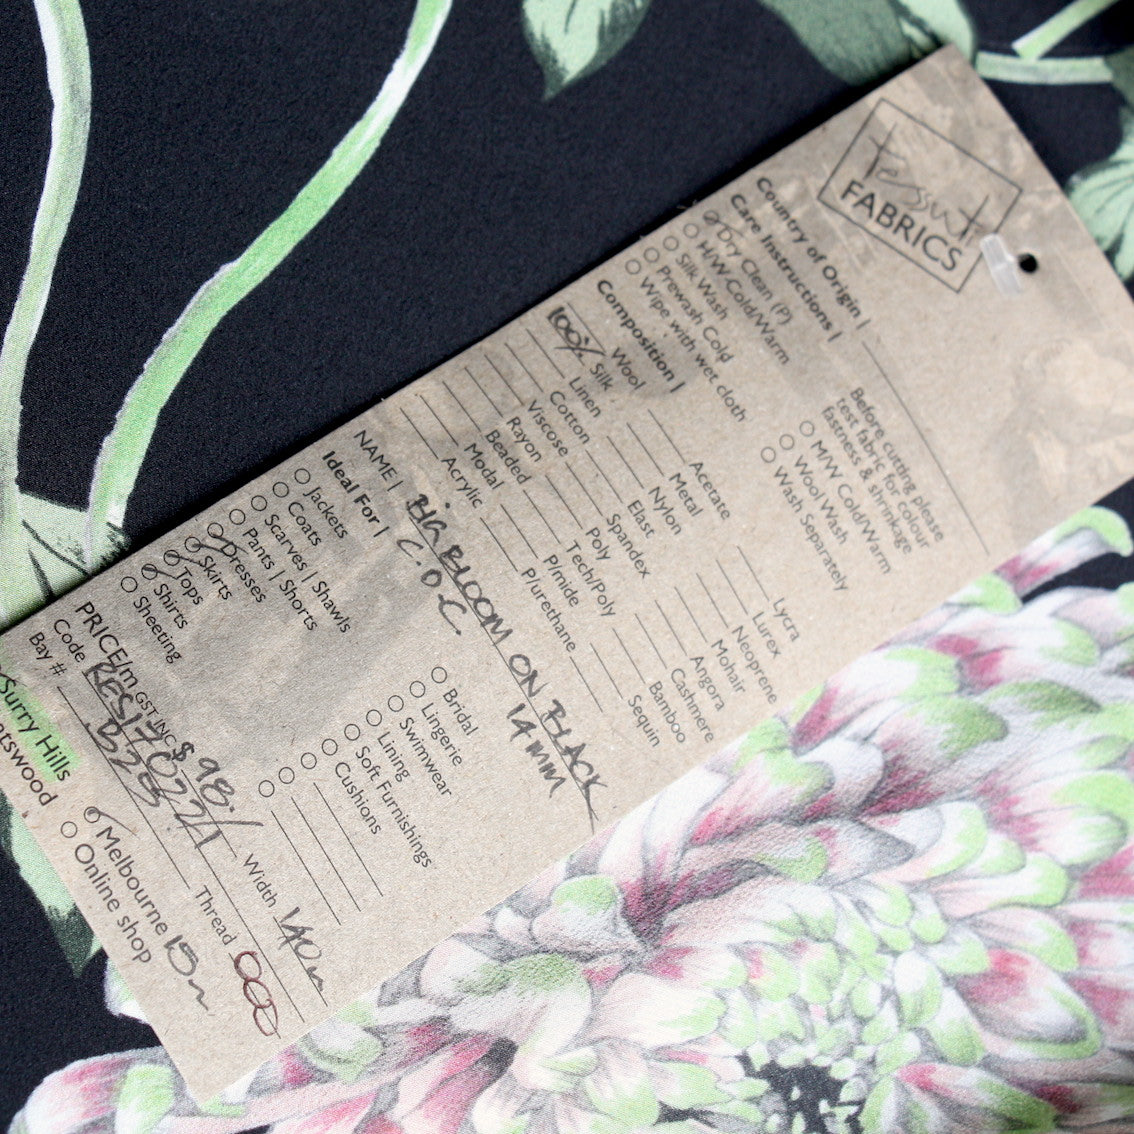 Tessuti
FABRICS
Country of Origin |
Care Instructions |
Dry Clean (P)
H/W/Cold/Warm
Silk Wash
Prewash Cold
Wipe with wet cloth
Before cutting please
test fabric for colour
fastness & shrinkage
M/W Cold/Warm
Wool Wash
Wash Separately
Composition |
Wool
100% Silk
Linen
Cotton
Viscose
Rayon
Beaded
Modal
Acrylic
Acetate
Metal
Nylon
Elast
Spandex
Poly
Tech/Poly
P/mide
Plurethane
Lycra
Lurex
Neoprene
Mohair
Angora
Cashmere
Bamboo
Sequin
NAME | BIG BLOOM ON BLACK
C.O.C. 14MM
Ideal For |
Jackets
Coats
Scarves | Shawls
Pants | Shorts
Dresses
Skirts
Tops
Shirts
Sheeting
Bridal
Lingerie
Swimwear
Lining
Soft Furnishings
Cushions
PRICE/m GST INC $98.- Width 140cm
Code RES170221 Thread 000
Bay # B28
Surry Hills
Melbourne 15m
Online shop